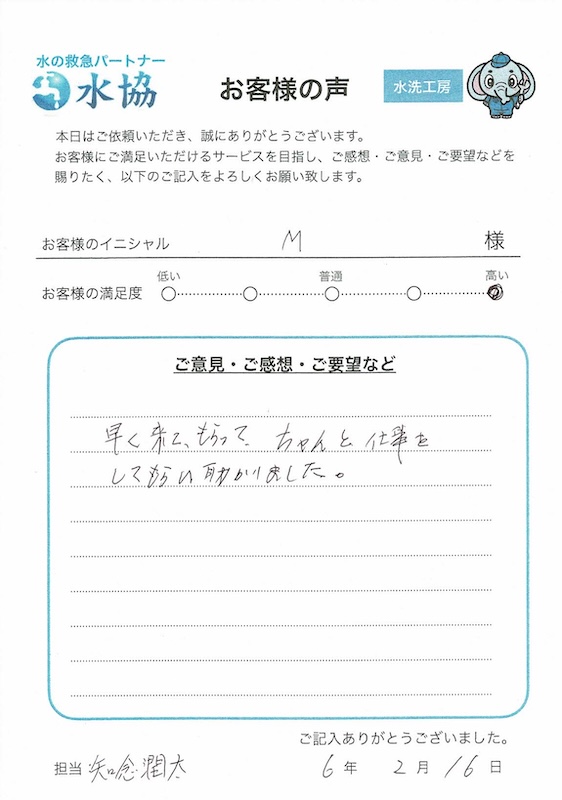 水の救急パートナー
水協
お客様の声
水洗工房
本日はご依頼いただき、誠にありがとうございます。
お客様にご満足いただけるサービスを目指し、ご感想・ご意見・ご要望などを
賜りたく、以下のご記入をよろしくお願い致します。
お客様のイニシャル M 様
低い 普通 高い
お客様の満足度
ご意見・ご感想・ご要望など
早く来て、もらって、ちゃんと仕事を
してもらい助かりました。
ご記入ありがとうございました。
担当 知念潤太 6年 2月 16日